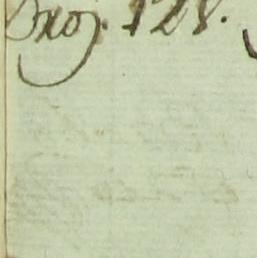 Broj. 128.